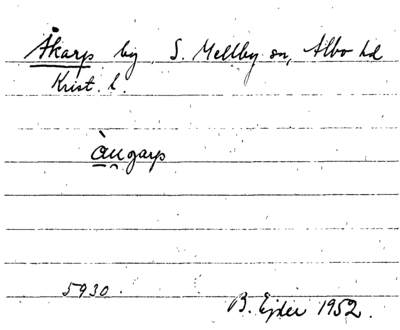 Åkarp by, S. Mellby sn, Albo hd
Krist. l.
àu̯garp
5930.
B. Ejder 1952.